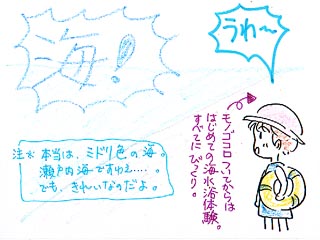 海!
うわ〜
モノゴコロついてからは
はじめての海水浴体験。
すべてにびっくり。
注※ 本当は、ミドリ色の海。
瀬戸内海ですゆえ‥‥。
でも、きれいなのだよ。